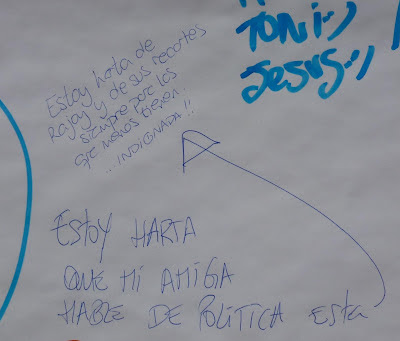 TONi :-)
JESUS :-)
Estoy harta de
Rajoy y de sus recortes
siempre por los
que menos tienen.
.. INDIGNADA!!
ESTOY HARTA
QUE MI AMIGA
HABLE DE POLÍTICA ESTA